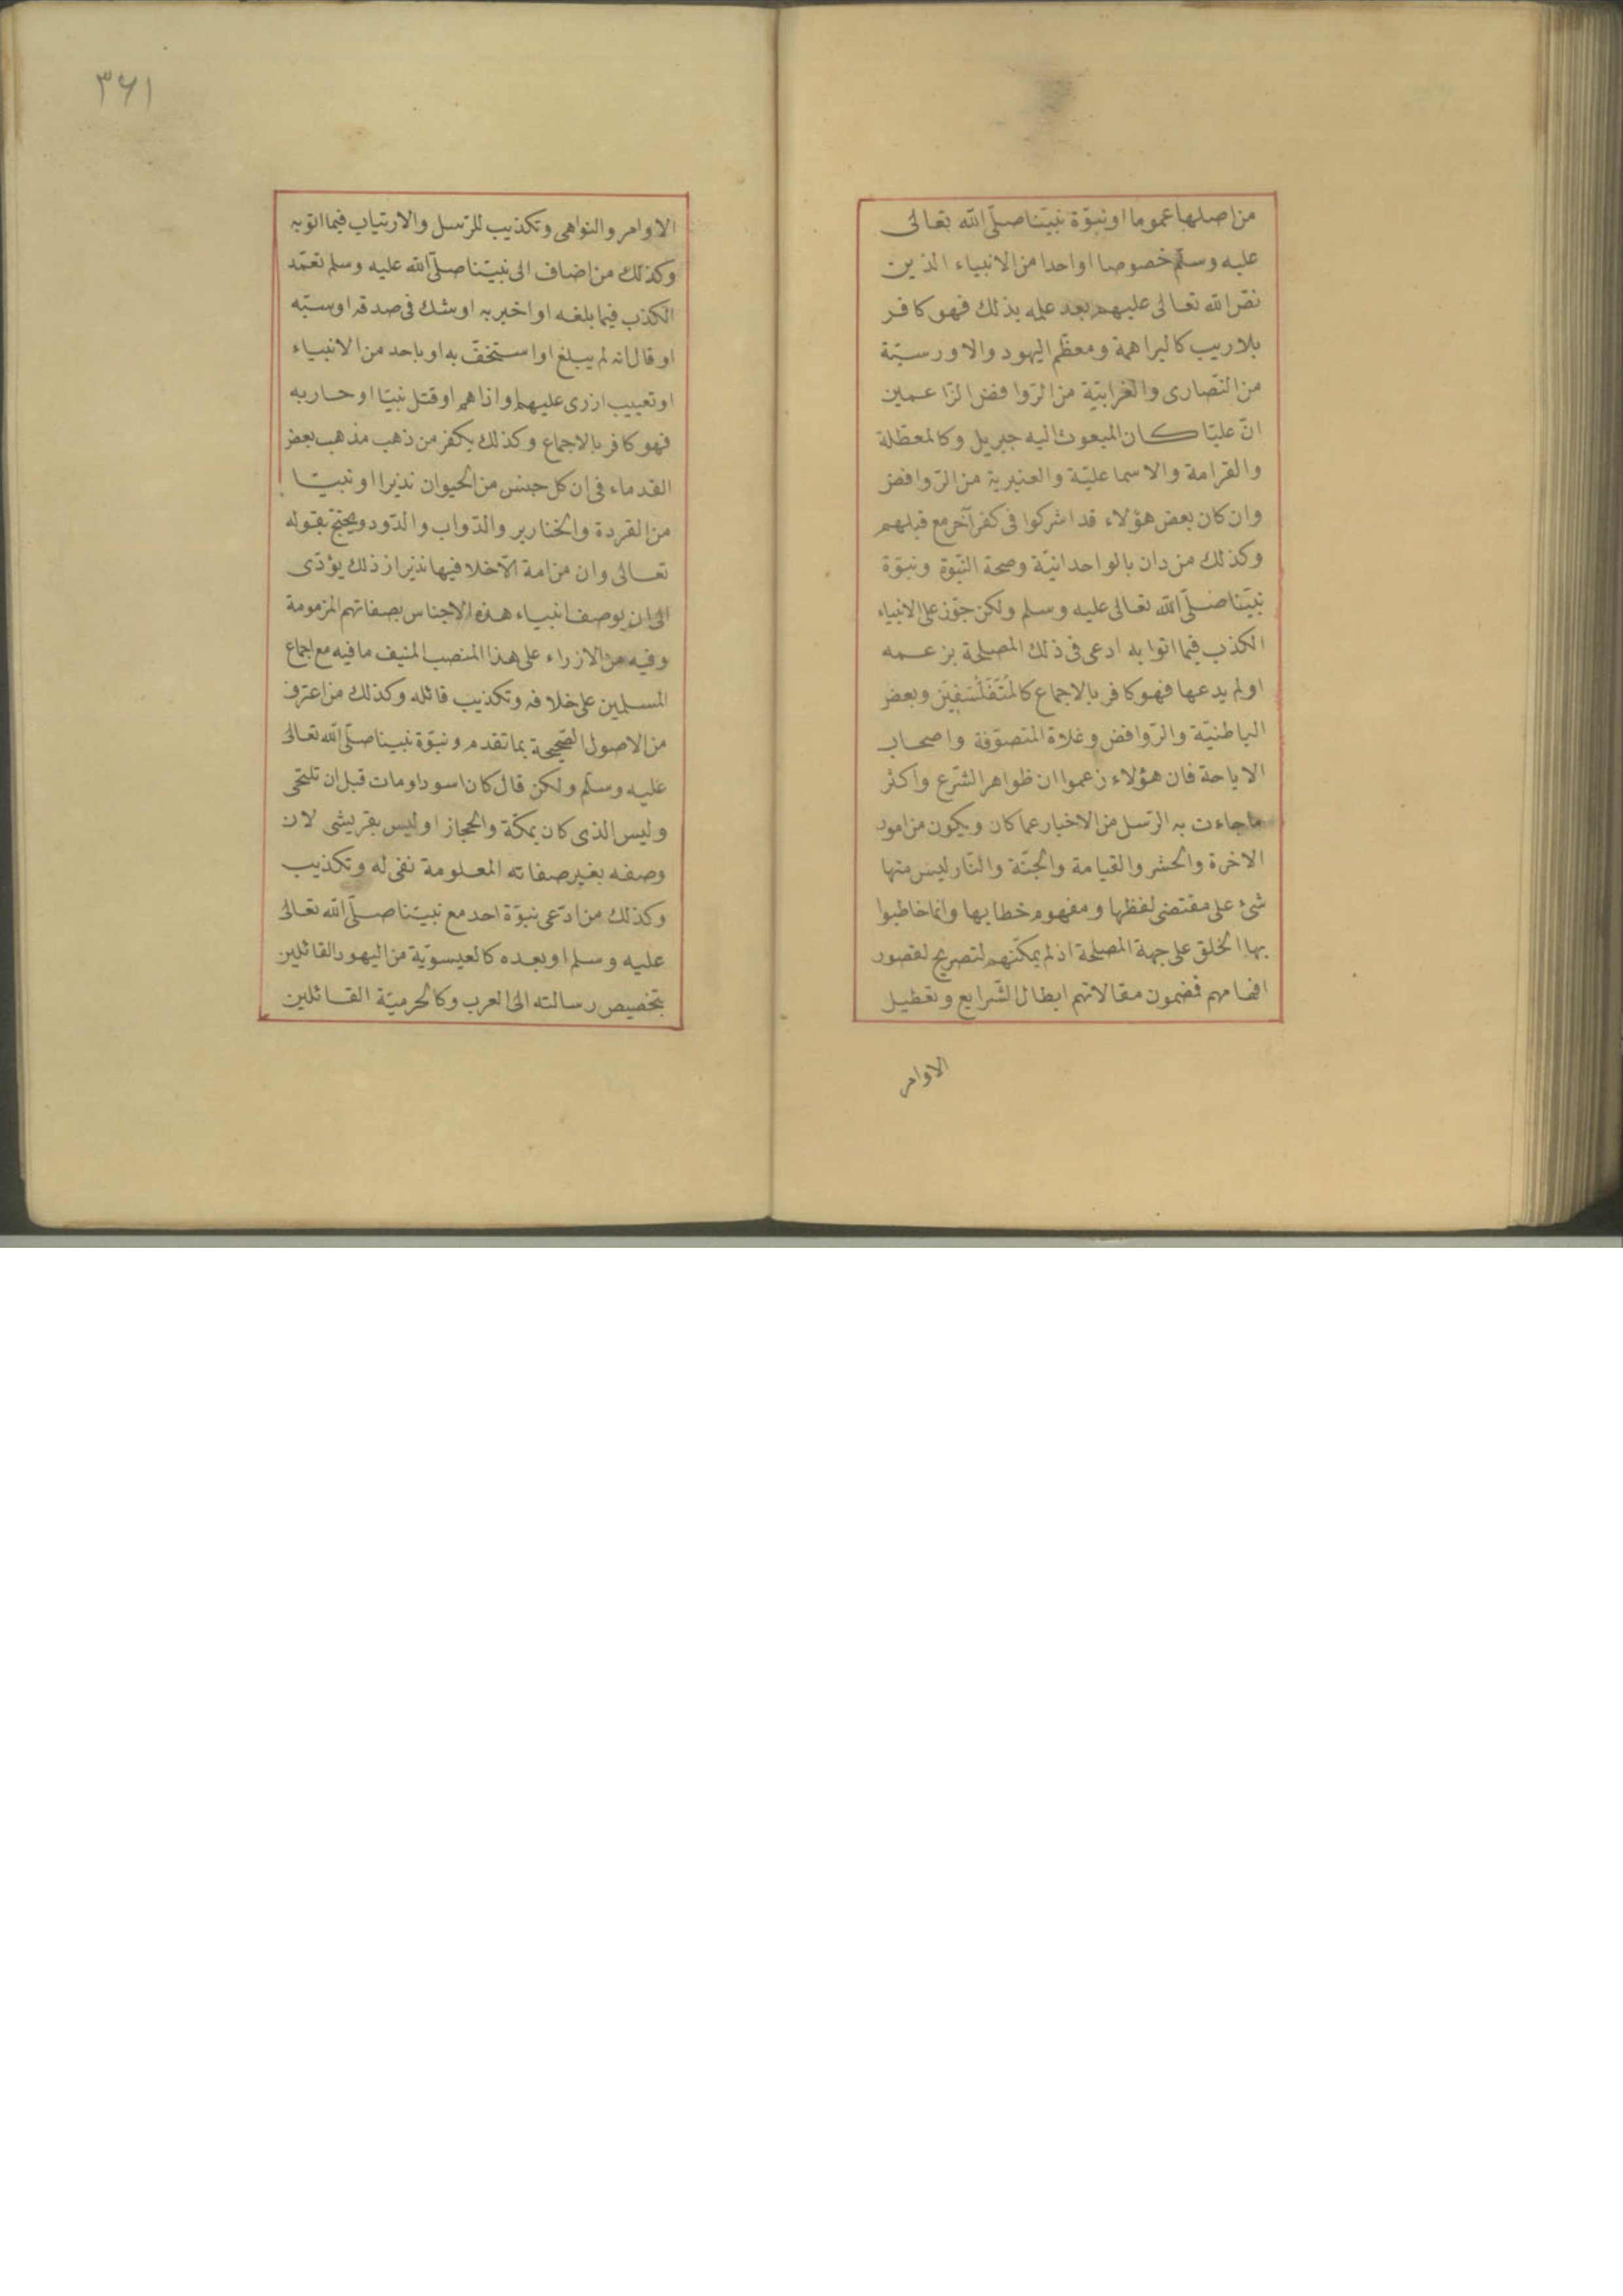 من اصلها عموما او نبوّة نبيّنا صلّى الله تعالى
عليه وسلّم خصوصا او احدا من الانبياء الذين
نصّ الله تعالى عليهم بعد علمه بذلك فهو كافر
بلا ريب كالبراهمة ومعظم اليهود والاورسيّة
من النّصارى والغرابيّة من الرّوافض الزّاعمين
انّ عليّا كان المبعوث اليه جبريل وكالمعطّلة
والقرامة والاسماعليّة والعنبرية من الرّوافض
وان كان بعض هؤلاء قد اشركوا فى كفر آخر مع قبلهم
وكذلك من دان بالواحدانيّة وصحة النّبوة ونبوّة
نبيّنا صلّى الله تعالى عليه وسلم ولكن جوّز على الانبياء
الكذب فيما اتوا به ادعى فى ذلك المصلحة بزعمه
اولم يدعها فهو كافر بالاجماع كالمُتَفَلْسِفِيَن وبعض
الباطنيّة والرّوافض وغلاة المتصوّفة واصحاب
الاباحة فان هؤلاء زعموا ان ظواهر الشّرع واكثر
ما جاءت به الرّسل من الاخبار عما كان ويكون من امور
الاخرة والحشر والقيامة والجنّة والنّار ليس منها
شئ على مقتضى لفظها ومفهوم خطابها وانما خاطبوا
بها الخلق على جهة المصلحة اذ لم يمكّنهم لتصريح لقصور
افهامهم فمضمون مقالاتهم ابطال الشّرايع وتعطيل
الاوامر
٣٦١
الاوامر والنواهى وتكذيب للرّسل والارتياب فيما اتوبه
وكذلك من اضاف الى نبيّنا صلّى الله عليه وسلم تعمّد
الكذب فيما بلغه او اخبر به او شك فى صدقه او سبّه
او قال انه لم يبلغ او استخفّ به او باحد من الانبياء
او تعييب ازرى عليهم واذاهم او قتل نبيّا او حاربه
فهو كافر بالاجماع وكذلك يكفر من ذهب مذهب بعض
القدماء فى ان كل جنس من الحيوان نذيرا او نبيّا
من القردة والخنازير والدّواب والدّود ويحتجّ بقوله
تعالى وان من امة الّا خلا فيها نذير از ذلك يؤدّى
الى ان يوصف انبياء هذه الاجناس بصفاتهم المزمومة
وفيه من الازراء على هذا المنصب المنيف ما فيه مع اجماع
المسلمين على خلافه وتكذيب قائله وكذلك من اعترف
من الاصول الصّحيحة بما تقدم ونبوّة نبينا صلّى الله تعالى
عليه وسلّم ولكن قال كان اسود او مات قبل ان تلتحى
وليس الذى كان بمكّة والحجاز او ليس بقريشى لان
وصفه بغير صفاته المعلومة نفى له وتكذيب
وكذلك من ادّعى نبوّة احد مع نبيّنا صلّى الله تعالى
عليه وسلم او بعده كالعيسويّة من اليهود القائلين
بتخصيص رسالته الى العرب وكالحرميّة القائلين